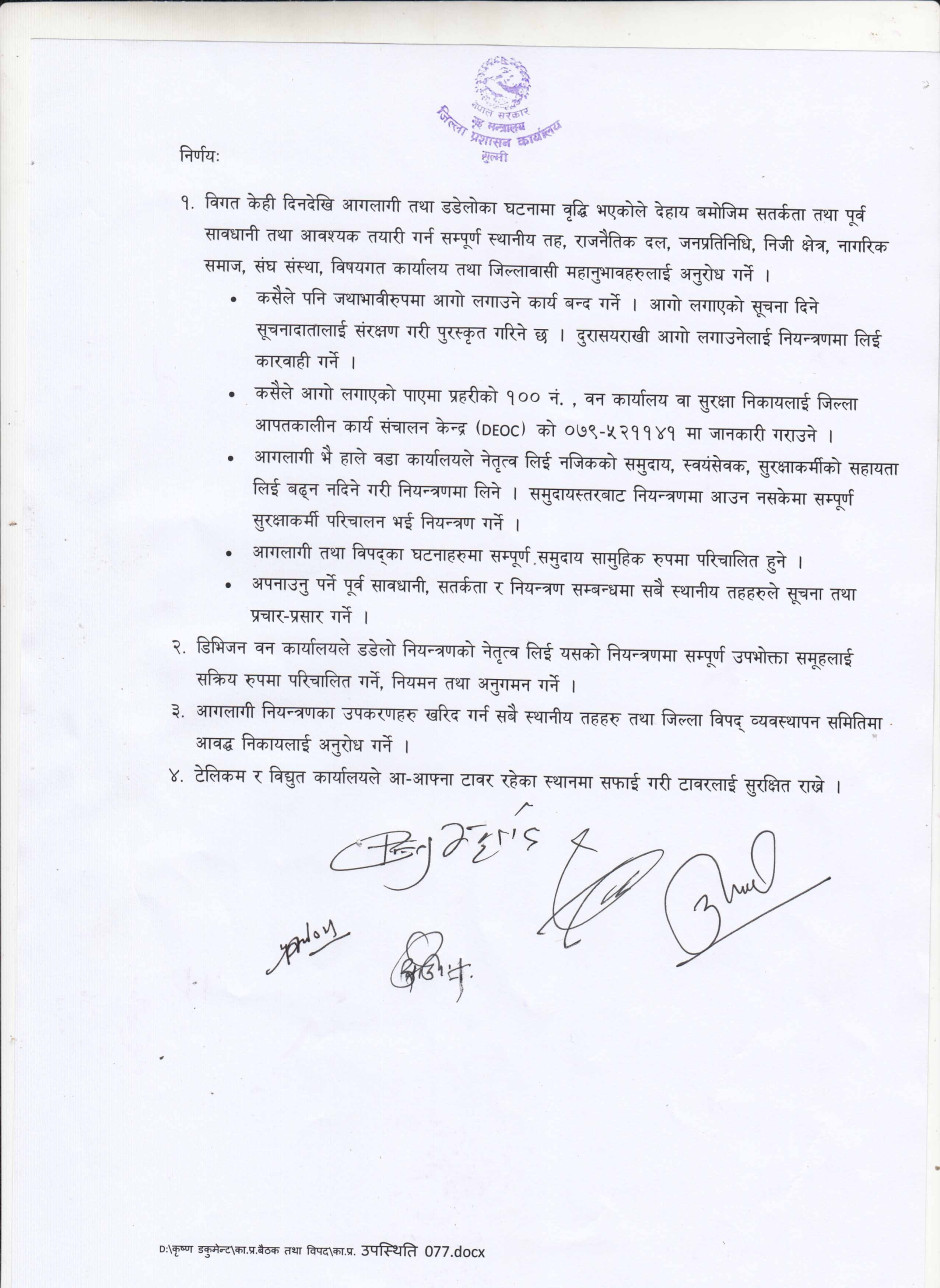 नेपाल सरकार
गृह मन्त्रालय
जिल्ला प्रशासन कार्यालय
गुल्मी
निर्णयः
१. विगत केही दिनदेखि आगलागी तथा डडेलोका घटनामा वृद्धि भएकोले देहाय बमोजिम सतर्कता तथा पूर्व
सावधानी तथा आवश्यक तयारी गर्न सम्पूर्ण स्थानीय तह, राजनैतिक दल, जनप्रतिनिधि, निजी क्षेत्र, नागरिक
समाज, संघ संस्था, विषयगत कार्यालय तथा जिल्लावासी महानुभावहरुलाई अनुरोध गर्ने ।
• कसैले पनि जथाभावीरुपमा आगो लगाउने कार्य बन्द गर्ने । आगो लगाएको सूचना दिने
सूचनादातालाई संरक्षण गरी पुरस्कृत गरिने छ । दुरासयराखी आगो लगाउनेलाई नियन्त्रणमा लिई
कारवाही गर्ने ।
• कसैले आगो लगाएको पाएमा प्रहरीको १०० नं. , वन कार्यालय वा सुरक्षा निकायलाई जिल्ला
आपतकालीन कार्य संचालन केन्द्र (DEOC) को ०७९-५२११४१ मा जानकारी गराउने ।
• आगलागी भै हाले वडा कार्यालयले नेतृत्व लिई नजिकको समुदाय, स्वयंसेवक, सुरक्षाकर्मीको सहायता
लिई बढ्न नदिने गरी नियन्त्रणमा लिने । समुदायस्तरबाट नियन्त्रणमा आउन नसकेमा सम्पूर्ण
सुरक्षाकर्मी परिचालन भई नियन्त्रण गर्ने ।
• आगलागी तथा विपद्का घटनाहरुमा सम्पूर्ण समुदाय सामुहिक रुपमा परिचालित हुने ।
• अपनाउनु पर्ने पूर्व सावधानी, सतर्कता र नियन्त्रण सम्बन्धमा सबै स्थानीय तहहरुले सूचना तथा
प्रचार-प्रसार गर्ने ।
२. डिभिजन वन कार्यालयले डडेलो नियन्त्रणको नेतृत्व लिई यसको नियन्त्रणमा सम्पूर्ण उपभोक्ता समूहलाई
सक्रिय रुपमा परिचालित गर्ने, नियमन तथा अनुगमन गर्ने ।
३. आगलागी नियन्त्रणका उपकरणहरु खरिद गर्न सबै स्थानीय तहहरु तथा जिल्ला विपद् व्यवस्थापन समितिमा
आवद्ध निकायलाई अनुरोध गर्ने ।
४. टेलिकम र विद्युत कार्यालयले आ-आफ्ना टावर रहेका स्थानमा सफाई गरी टावरलाई सुरक्षित राख्ने ।
D:\कृष्ण डकुमेन्ट\का.प्र.बैठक तथा विपद\का.प्र. उपस्थिति 077.docx